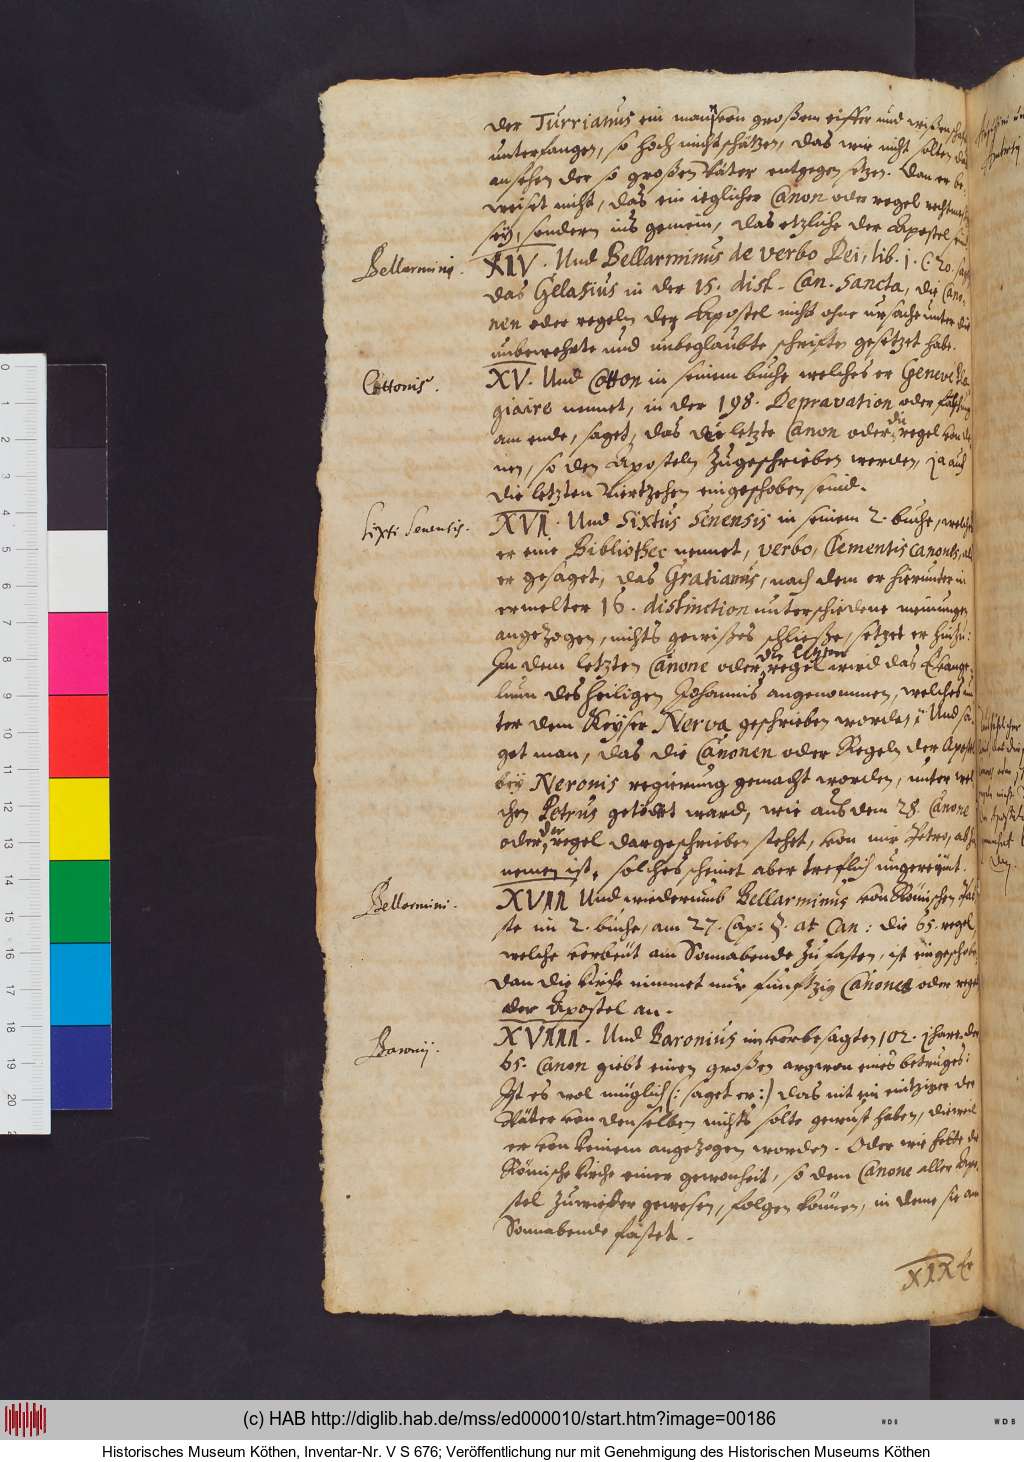 der Turrianus ein man von großem eiffer und wißenschaft
unterfangen, so hoch nicht schätzen, das wir nicht solten das
ansehen der so großen Väter entgegen setzen. Dan er be-
weiset nicht, das ein ieglicher Canon oder regel rechtmeßig
sey, sondern ins gemein, das etzliche der Apostel sind
Bellarminij.
XIV. Und Bellarminus de verbo Dei, lib. j. C. 20. saget
das Gelasius in der 15. dist. Can. Sancta, die Cano-
nen oder regeln der Apostel nicht ohne ursache unter die
unbewehrte und unbeglaubte schriften gesetzet habe.
Cottonis.
XV. Und Cotton in seinem buche welches er Geneve Pla-
giaire nennet, in der 198. Depravation oder fälschung
am ende, saget, das die letzte Canon oder die regel von de-
nen, so den Aposteln zugeschrieben werden, ja auch
die letzten viertzehen eingeschoben seind.
Sixti Senensis.
XVI. Und Sixtus Senensis in seinem 2. buche, welches
er eine Bibliothec nennet, verbo, Clementis canones, als
er gesaget, das Gratianus, nach dem er hierunter in
ermelter 16. distinction unterschiedene meinungen
angezogen, nichts gewißes schließe, setzet er hinzu:
In dem letzten Canone oder der letzten regel wird das Evange-
lium des heiligen Johannis angenommen, welches un-
ter dem Keyser Nerva geschrieben worden: Und sa-
get man, das die Canonen oder Regeln der Apostel
bey Neronis regierung gemacht worden, unter wel-
chen Petrus getödtet ward, wie aus dem 28. Canone
oder der regel dargeschrieben stehet, von mir Petro,
nemen ist, solches scheinet aber treflich ungereymt.
Bellarmini.
XVII Und wiederumb Bellarminus von Römischen Päb-
ste im 2. buche, am 27. Cap: §. at Can: die 65. regel
welche verbeut am Sonnabende zu fasten, ist eingeschoben
dan die kirche nimmet nur funftzig Canones oder regel
der Apostel an.
Baronij.
XVIII. Und Baronius im vorbesagten 102. jhare. der
65. Canon giebt einen großen argwon eines betruges:
Ist es wol müglich (: saget er :) das nit ein eintziger der
Väter von denselben nichts solte gewust haben, dieweil
er von keinem angezogen worden. Oder wie hette die
Römische kirche einer gewonheit, so dem Canone aller Apo-
stel zuwieder gewesen, folgen können, in deme sie am
Sonnabende fastet.
XIX Er
(c) HAB http://diglib.hab.de/mss/ed000010/start.htm?image=00186
WDB
WDB
Historisches Museum Köthen, Inventar-Nr. V S 676; Veröffentlichung nur mit Genehmigung des Historischen Museums Köthen